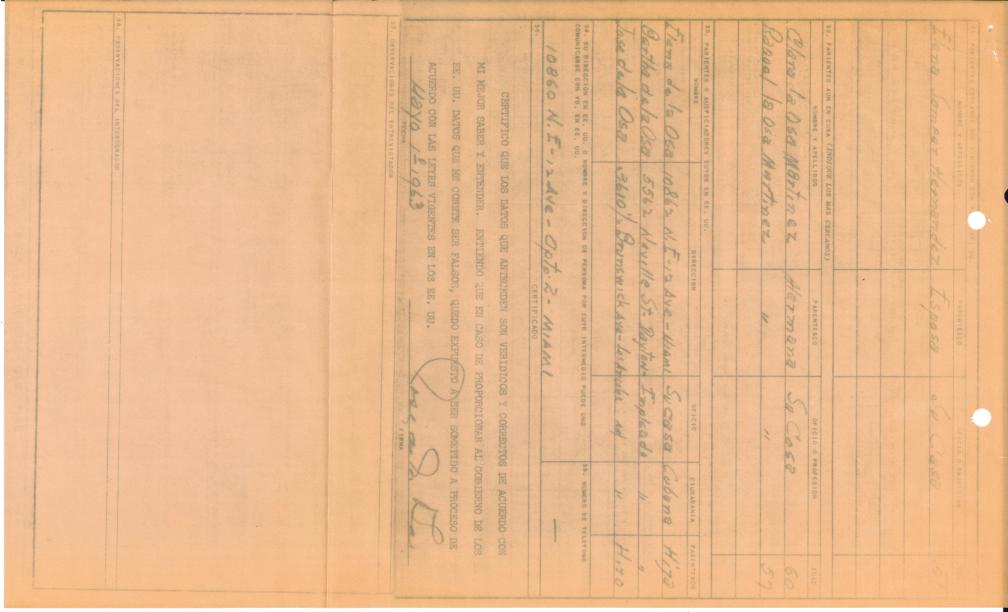 Elena Sanchez Hernandez Esposa Su Casa
32. PARIENTES AUN EN CUBA (INDIQUE LOS MÁS CERCANOS)
NOMBRE Y APELLIDOS PARENTESCO OFICIO O PROFESION EDAD
Clara la Osa Martinez Hermana Su Casa 60
Raqel la Osa Martinez " " 57
33. PARIENTES O AUSPICIADORES SUYOS EN EE. UU.
NOMBRE DIRECCION OFICIO CIUDADANIA PARENTESCO
Elena de la Osa 10862 N.E-12 Ave-Miami Su casa Cubana Hija
Bertha de la Osa 5562 Neville St. Dayton Empleada " "
Jose de la Osa 3610½ Brunswick Ave-Los Angeles id " Hijo
34. SU DIRECCION EN EE. UU. O NOMBRE Y DIRECCION DE PERSONA POR CUYO INTERMEDIO PUEDE UNO COMUNICARSE CON VD. EN EE. UU. 35. NUMERO DE TELEFONO
10860 N.E-12 Ave-Apto. 2-MIAMI —
36. CERTIFICADO
CERTIFICO QUE LOS DATOS QUE ANTECEDEN SON VERIDICOS Y CORRECTOS DE ACUERDO CON
MI MEJOR SABER Y ENTENDER. ENTIENDO QUE EN CASO DE PROPORCIONAR AL GOBIERNO DE LOS
EE. UU. DATOS QUE ME CONSTE SER FALSOS, QUEDO EXPUESTO A SER SOMETIDO A PROCESO DE
ACUERDO CON LAS LEYES VIGENTES EN LOS EE. UU.
Mayo 1º 1963
FECHA FIRMA
37. OBSERVACIONES DEL ENTREVISTADOR
38. OBSERVACIONES DEL INTERROGADOR